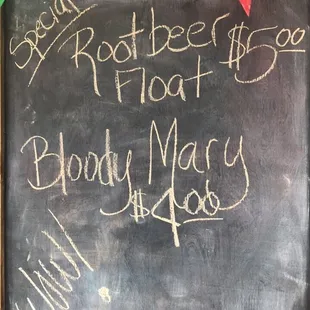 Special
Rootbeer $5.00
Float
Bloody Mary
$4.00